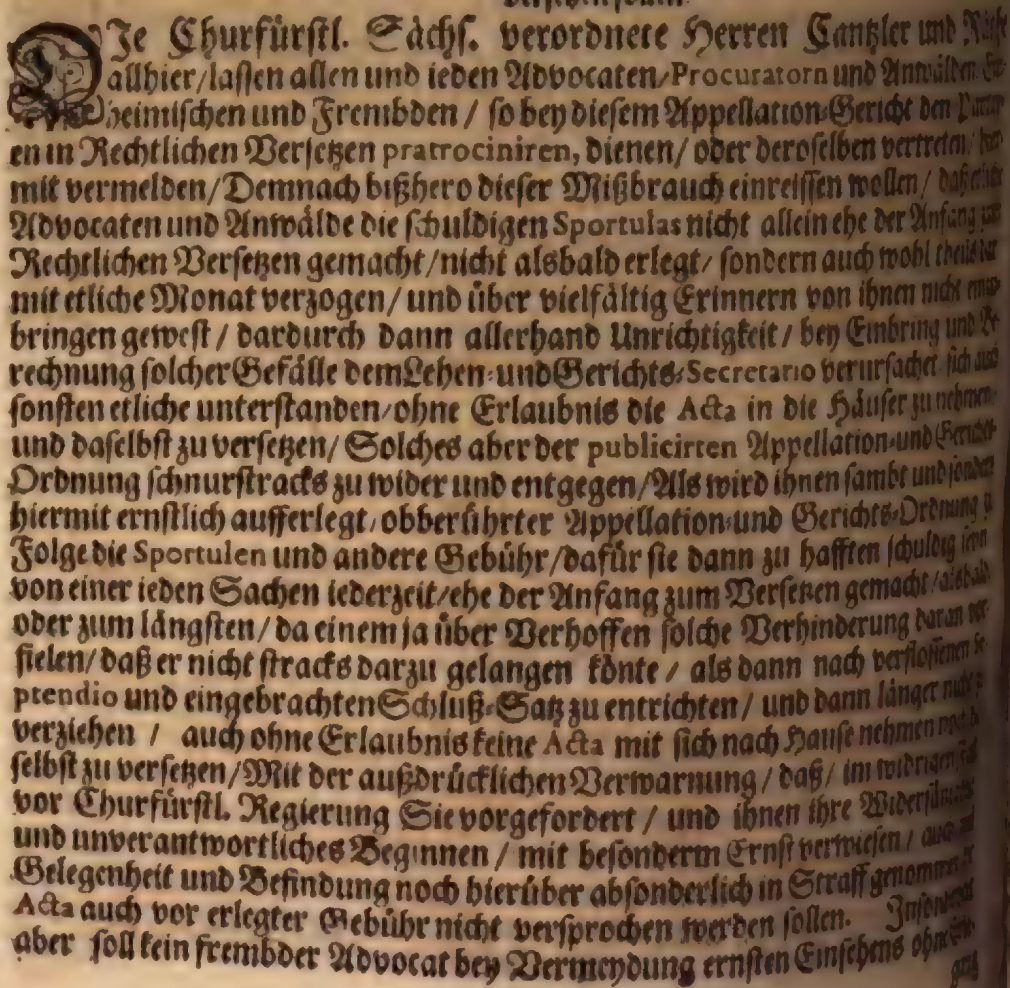 DJe Churfürstl. Sächs. verordnete Herren Cantzler und Räthe
allhier/lassen allen und ieden Advocaten/Procuratorn und Anwälden
heimischen und Frembden / so bey diesem Appellation-Gericht den
en in Rechtlichen Versetzen pratrociniren, dienen/ oder deroselben vertreten/
mit vermelden/Demnach bißhero dieser Mißbrauch einreissen wollen / daß etliche
Advocaten und Anwälde die schuldigen Sportulas nicht allein ehe der Anfang zum
Rechtlichen Versetzen gemacht/nicht alsbald erlegt/ sondern auch wohl theils
mit etliche Monat verzogen/ und über vielfältig Erinnern von ihnen nicht
bringen gewest / dardurch dann allerhand Unrichtigkeit / bey Einbring und Be-
rechnung solcher Gefälle dem Lehen-und Gerichts-Secretario verursachet sich auch
sonsten etliche unterstanden/ohne Erlaubnis die Acta in die Häuser zu nehmen
und daselbst zu versetzen/ Solches aber der publicirten Appellation-und Gerichts-
Ordnung schnurstracks zu wider und entgegen/Als wird ihnen sambt und sonders
hiermit ernstlich aufferlegt/obberührter Appellation-und Gerichts-Ordnung
Folge die Sportulen und andere Gebühr/dafür sie dann zu hafften schuldig seyn
von einer ieden Sachen iederzeit/ehe der Anfang zum Versetzen gemacht/alsbald
oder zum längsten/ da einem ja über Verhoffen solche Verhinderung daran vor-
fielen/daß er nicht stracks darzu gelangen könte / als dann nach verflossenen
ptendio und eingebrachten Schluß-Satz zu entrichten / und dann länger nicht
verziehen / auch ohne Erlaubnis keine Acta mit sich nach Hause nehmen noch
selbst zu versetzen/Mit der außdrücklichen Verwarnung / daß/ im widrigen
vor Churfürstl. Regierung Sie vorgefordert / und ihnen ihre
und unverantwortliches Beginnen / mit besonderm Ernst verwiesen /
Gelegenheit und Befindung noch hierüber absonderlich in Straff genommen
Acta auch vor erlegter Gebühr nicht versprochen werden sollen. Insonderheit
aber soll kein frembder Advocat bey Vermeydung ernsten Einsehens